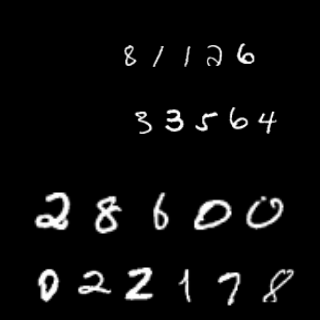 81126
33564
28600
022178